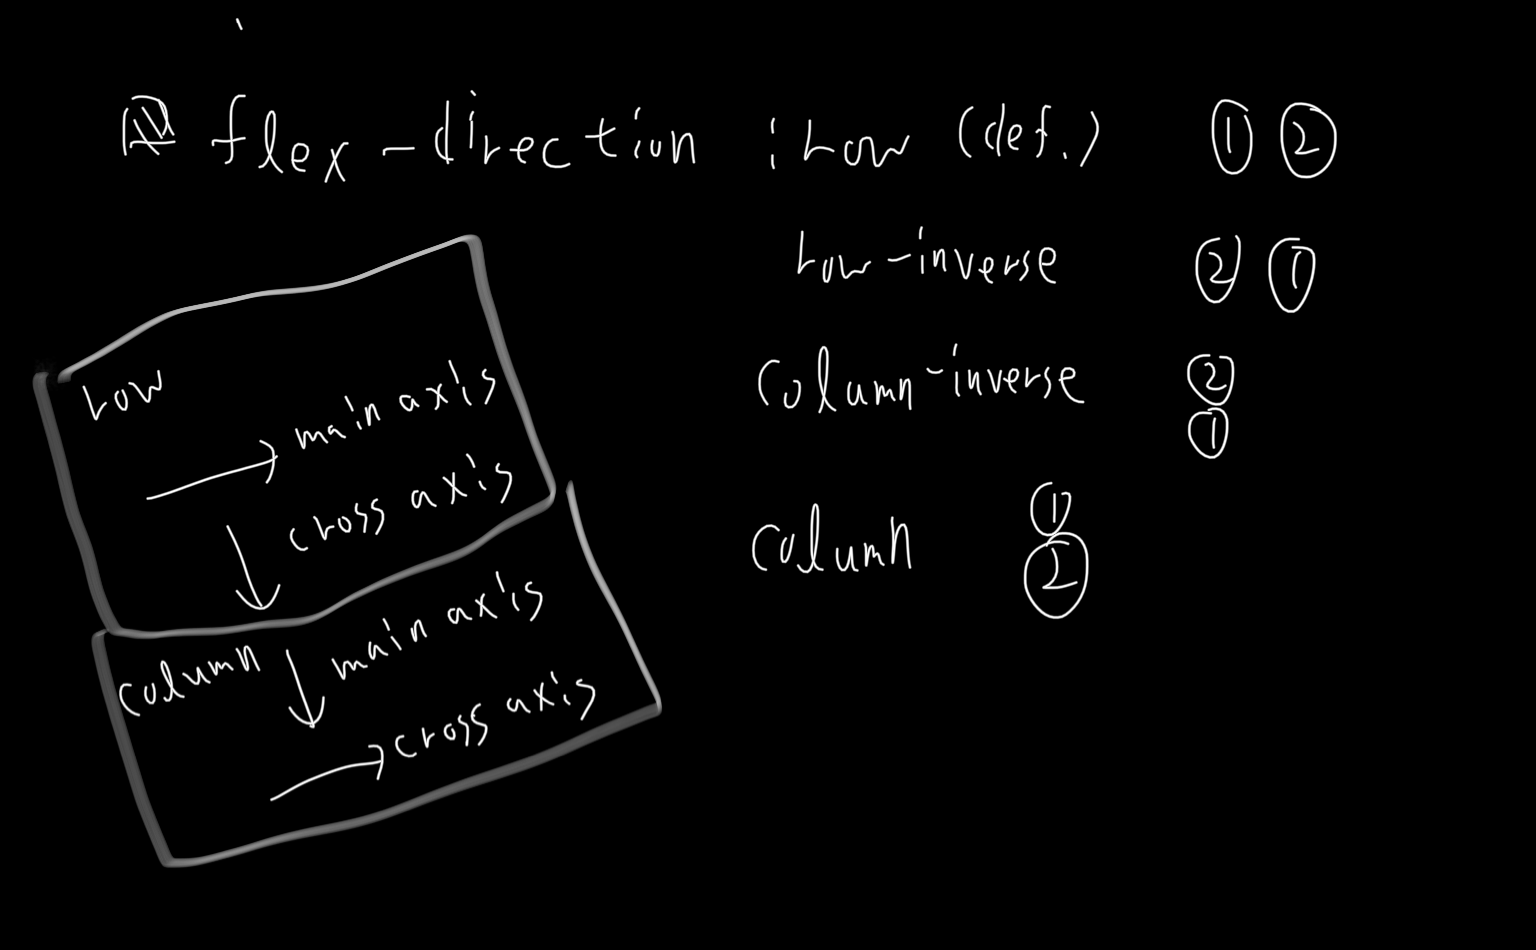 flex-direction : row (def.) ① ②
row-inverse ② ①
column-inverse ②
①
column ①
②
row
→ main axis
↓ cross axis
column ↓ main axis
→ cross axis